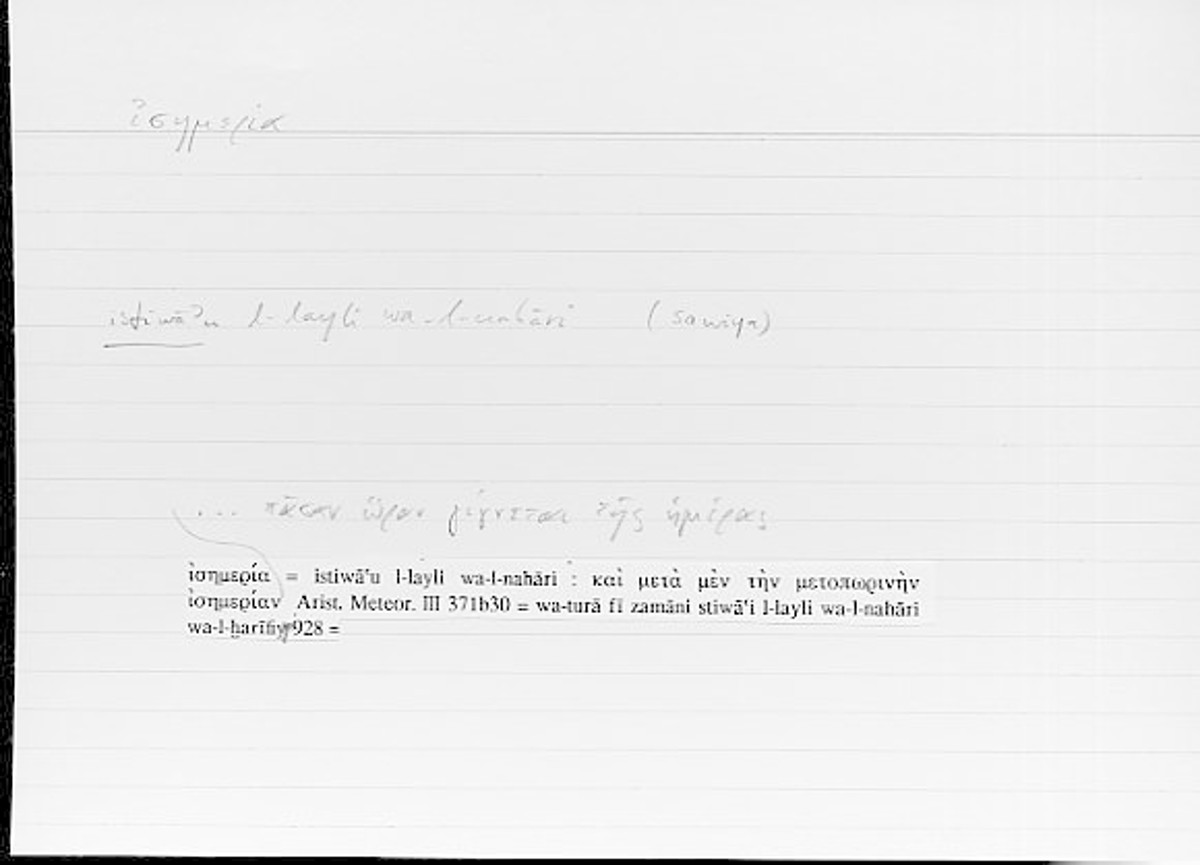 ἰσημερία
istiwāʾu l-layli wa-l-nahāri (sawiya)
... πᾶσαν ὥραν γίγνεται τῆς ἡμέρας
ἰσημερία = istiwā'u l-layli wa-l-nahāri : καὶ μετὰ μὲν τὴν μετοπωρινὴν
ἰσημερίαν Arist. Meteor. III 371b30 = wa-turā fī zamāni stiwā'i l-layli wa-l-nahāri
wa-l-ḫarīfiy 928 =